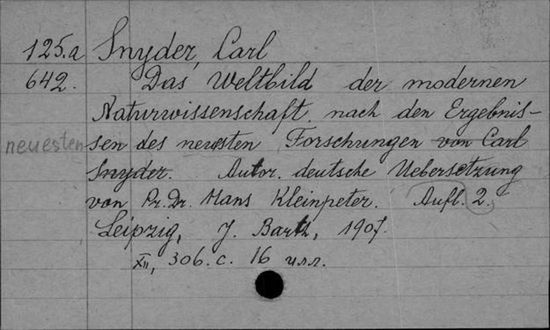 125.a Snyder, Carl
642. Das Weltbild der modernen
Naturwissenschaft nach den Ergebnis-
neuesten sen des neusten Forschungen von Carl
Snyder. Autor. deutsche Uebersetzung
von Pr. Dr. Hans Kleinpeter. Aufl. 2.
Leipzig, J. Barth, 1907.
XII, 306. с. 16 илл.